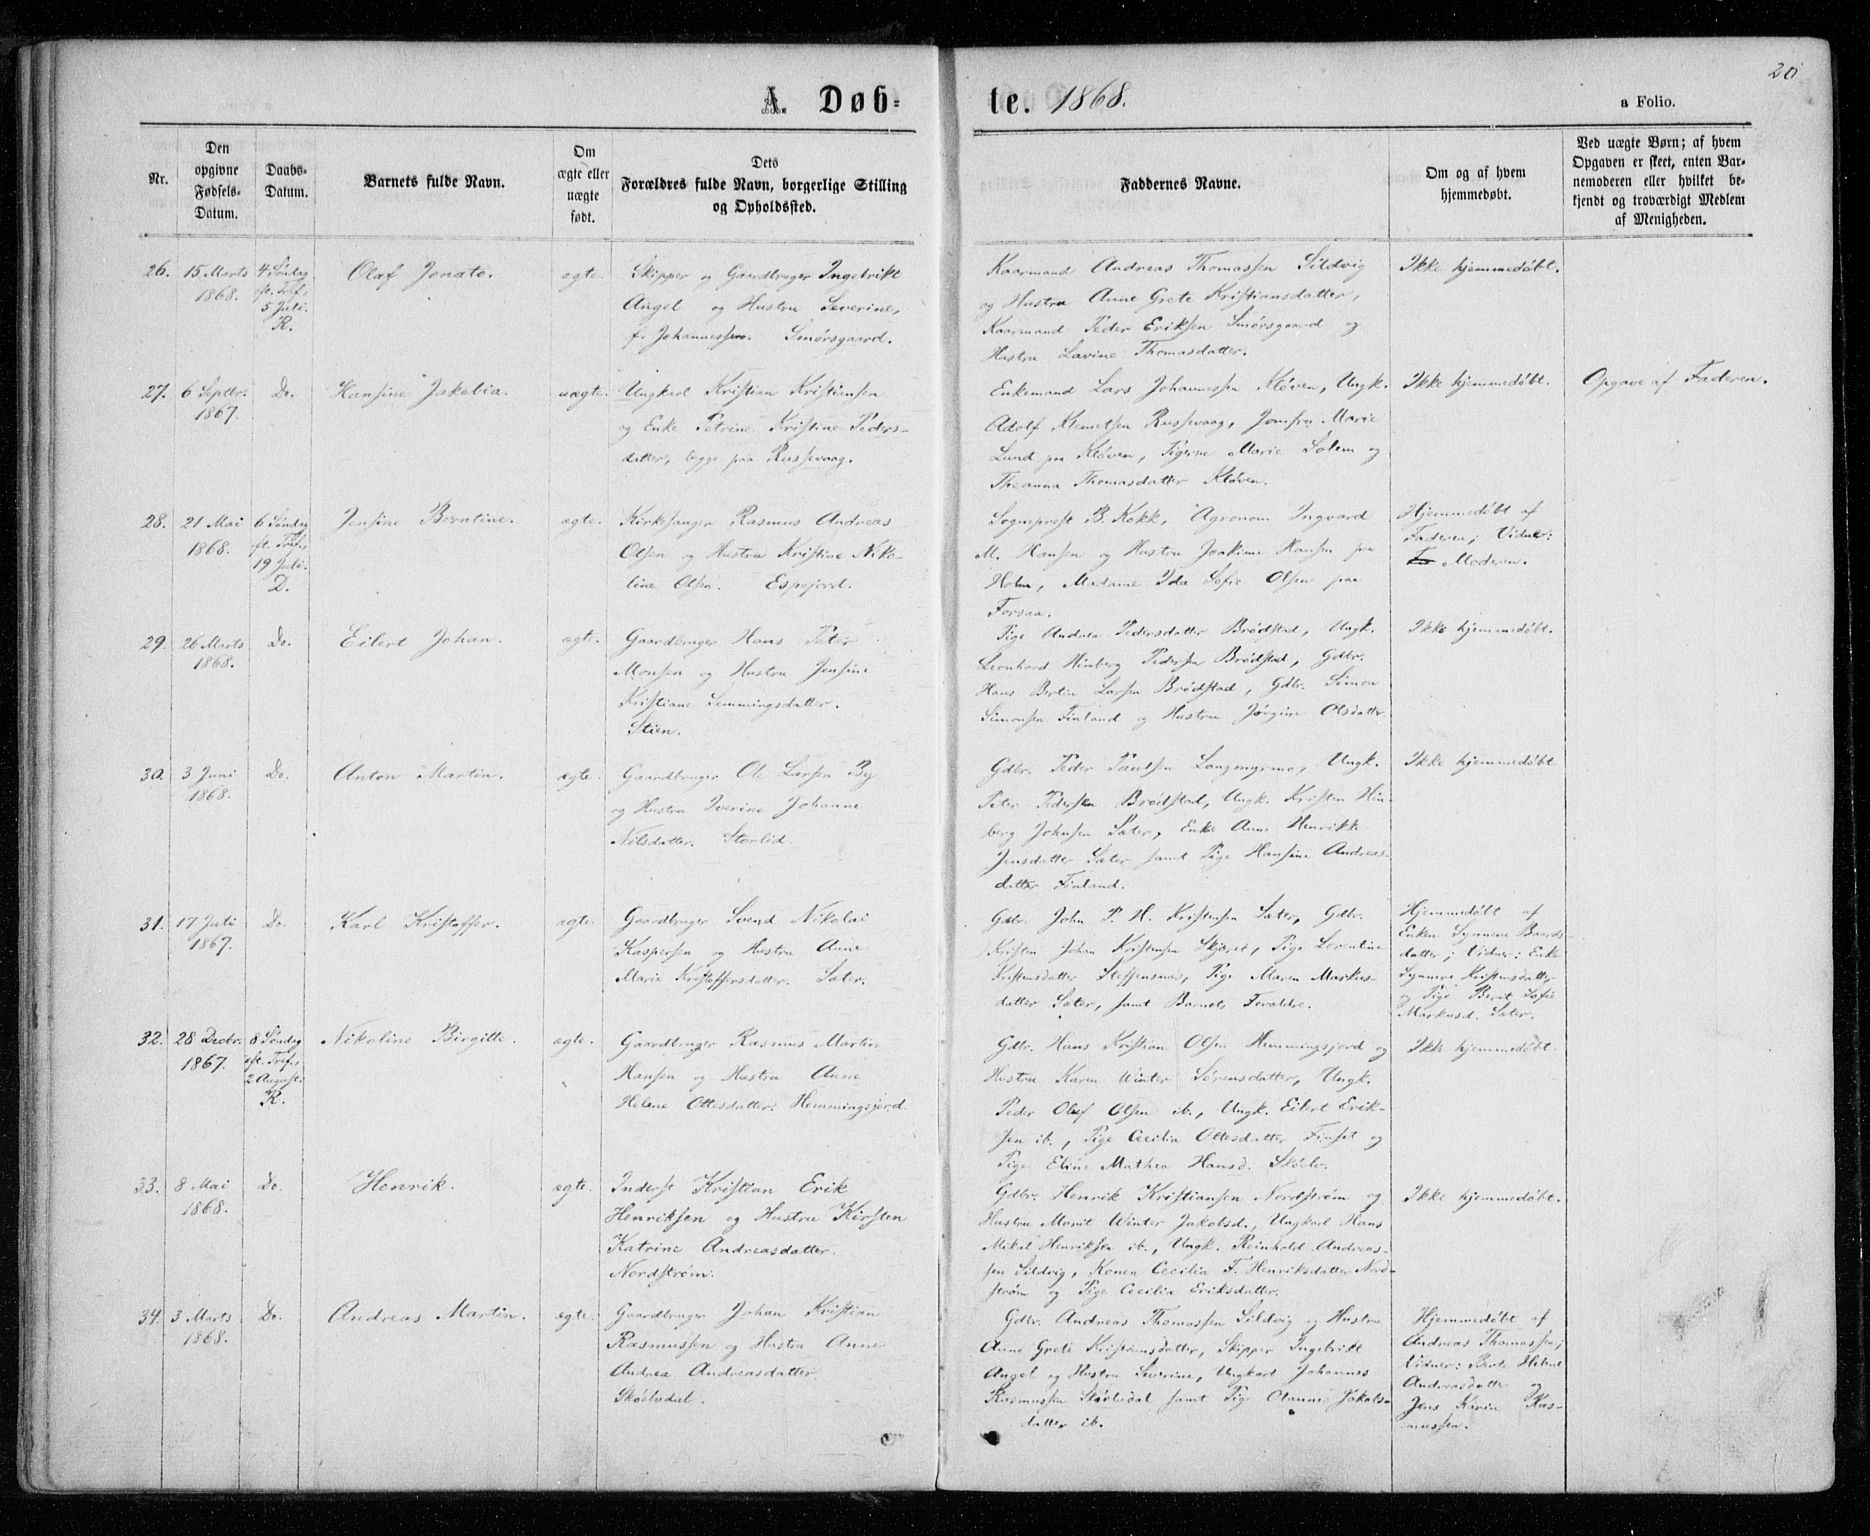 20
A. Døbte. 1868.
a Folio.
Nr.
Den
opgivne
Fødsels-
Datum.
Daabs-
Datum.
Barnets fulde Navn.
Om
ægte eller
uægte
født.
Dets
Forældres fulde Navn, borgerlige Stilling
og Opholdssted.
Faddernes Navne.
Om og af hvem
hjemmedøbt.
Ved uægte Børn; af hvem
Opgaven er skeet, enten Bar-
nemoderen eller hvilket be-
kjendt og troværdigt Medlem
af Menigheden.
26.
15 Marts
1868.
4 Søndag
eft. Tref.,
5 Juli.
R.
Olaf Jonato.
ægte.
Skipper og Gaardbruger Ingebrikt
Angel og Hustru Severine,
f. Johannessen. Smørsgaard.
Kaarmand Andreas Thomassen Sildvig
og Hustru Anne Grete Kristiansdatter,
Kaarmand Peder Eriksen Smørsgaard og
Hustru Lavine Thomasdatter.
Ikke hjemmedøbt.
27.
6 Septbr.
1867.
Do.
Hansine Jakobia.
uægte.
Ungkarl Kristian Kristiansen
og Enke Petrine Kristine Peders-
datter, begge paa Russevaag.
Enkemand Lars Johannessen Kløven, Ungk.
Adolf Klemetsen Russevaag, Jomfru Marie
Lund paa Kløven, Pigerne Marie Solem og
Theanna Thomasdatter Kløven.
Ikke hjemmedøbt.
Opgave af Faderen.
28.
21 Mai
1868.
6 Søndag
eft. Tref.,
19 Juli.
D.
Jensine Berntine.
ægte.
Kirkesanger Rasmus Andreas
Olsen og Hustru Kristine Niko-
line Olsen. Espejord.
Sogneprest B. Kokk, Agronom Ingvard
M. Hansen og Hustru Joakime Hansen paa
Holm, Madame Ida Sofie Olsen paa
Forsaa.
Hjemmedøbt af
Faderen; Vidner:
Moderen.
29.
26 Marts
1868.
Do.
Eilert Johan.
ægte.
Gaardbruger Hans Peter
Monsen og Hustru Jensine
Kristiane Lemmingsdatter.
Stien.
Pige Andrea Pedersdatter Brødstad, Ungk.
Leonhard Hinberg Pedersen Brødstad, Gdbr.
Hans Bertin Larsen Brødstad, Gdbr. Simon
Simonsen Finland og Hustru Jørgine Olsdatter
Ikke hjemmedøbt.
30.
3 Juni
1868.
Do.
Anton Martin.
ægte.
Gaardbruger Ole Larsen By
og Hustru Iverine Johanne
Nilsdatter. Storlid.
Gdbr. Peder Paulsen Langmyrmo, Ungk.
Peter Pedersen Brødstad, Ungk. Kristen Hin-
berg Johnsen Sæter, Enke Anne Henrikke
Jensdatter Sæter samt Pige Hansine Andreas-
datter Finland.
Ikke hjemmedøbt
31.
17 Juli
1867.
Do.
Karl Kristoffer.
ægte.
Gaardbruger Svend Nikolai
Kaspersen og Hustru Anne
Marie Kristoffersdatter. Sæter.
Gdbr. John P. H. Kristensen Sæter, Gdbr.
Kristen Johan Kristensen Skjæret, Pige Lorentine
Kristensdatter Steffensnæs, Pige Maren Markus-
datter Sæter, samt Barnets Forældre.
Hjemmedøbt af
Enken Synnøve Baards-
datter; Vidner: Enke
Synnøve Kristensdatter
og Pige Berit Sofie
Markusd. Sæter.
32.
28 Decbr.
1867.
8 Søndag
eft. Tref.,
2 August.
R.
Nikoline Birgitte.
ægte.
Gaardbruger Rasmus Martin
Hansen og Hustru Anne
Helene Ottesdatter. Hemmingsjord.
Gdbr. Hans Kristian Olsen Hemmingsjord og
Hustru Karen Winter Sørensdatter, Ungk.
Peder Oluf Olsen ib., Ungk. Eilert Erik-
sen ib., Pige Cecilia Ottesdatter Finset og
Pige Eline Mathea Hansd. Skøelv.
Ikke hjemmedøbt.
33.
8 Mai
1868.
Do.
Henrik.
ægte.
Inderst Kristian Erik
Henriksen og Hustru Kirsten
Katrine Andreasdatter.
Nordstrøm.
Gdbr. Henrik Kristiansen Nordstrøm og
Hustru Marit Winter Jakobsd., Ungkarl Hans
Mikel Henriksen ib., Ungk. Reinhold Andreas-
sen Sildvig, Konen Cecilia F. Henriksdatter Nord-
strøm og Pige Cecilia Eriksdatter.
Ikke hjemmedøbt.
34.
3 Marts
1868.
Do.
Andreas Martin.
ægte.
Gaardbruger Johan Kristian
Rasmussen og Hustru Anne
Andrea Andreasdatter.
Skøelvdal.
Gdbr. Andreas Thomassen Sildvig og Hustru
Anne Grete Kristiansdatter, Skipper Ingebrikt
Angel og Hustru Severine, Ungkarl Johannes
Rasmussen Skøelvdal samt Pige Olanne Jakobs-
datter ib.
Hjemmedøbt af
Andreas Thomassen;
Vidner: Berte Helene
Andreasdatter og
Jens Rasmussen.